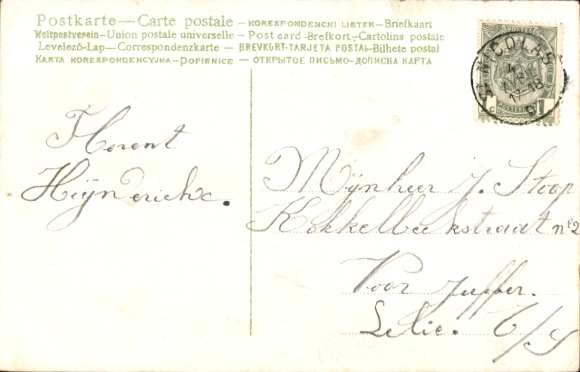 Postkarte — Carte postale — KORESPONDENCNI LISTEK — Briefkaart
Weltpostverein — Union postale universelle — Post card - Brefkort - Cartolina postale
Levelező-Lap — Correspondenzkarte — BREVKORT - TARJETA POSTAL - Bilhete postal
KARTA KORESPONDENCYJNA — DOPISNICE — ОТКРЫТОЕ ПИСЬМО - ДОПИСНА КАРТА
ST NICOLAS
POSTES
1
Florent
Heynderickx.
Mynheer J. Stoop
Kokkelbeekstraat nº 2
Voor Juffer.
Lelie. E/S